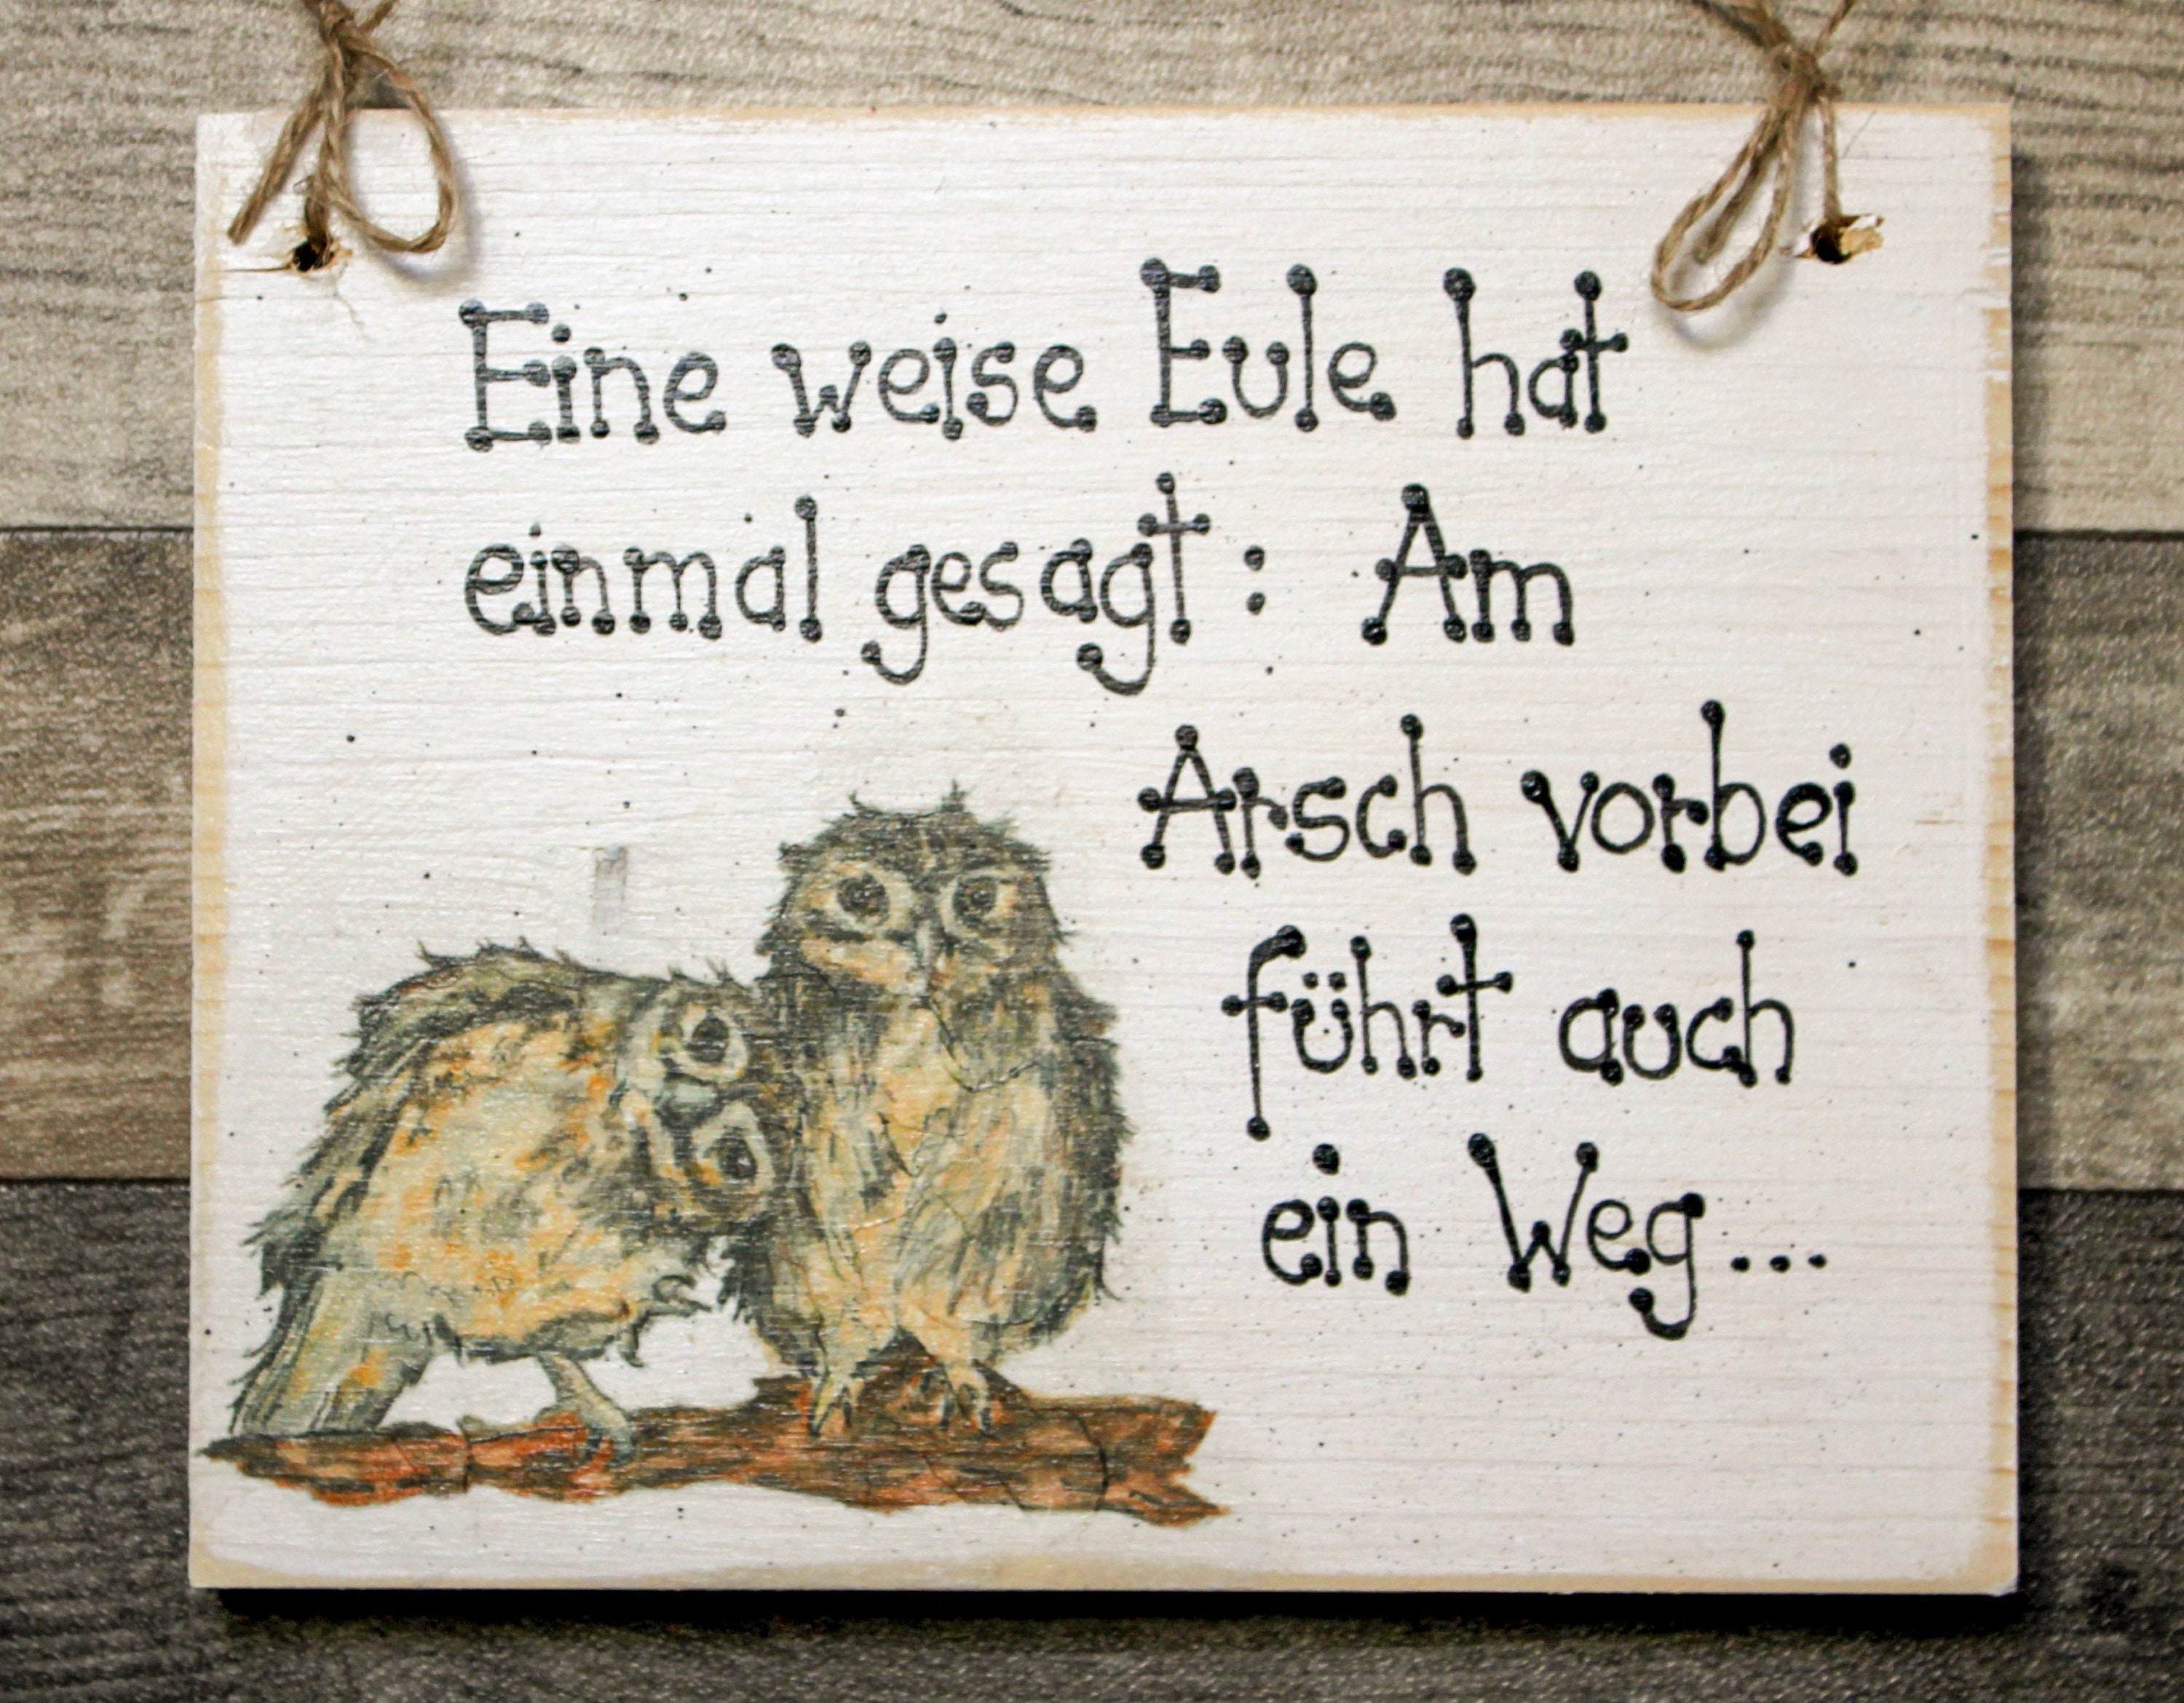 Eine weise Eule hat
einmal gesagt: Am
Arsch vorbei
führt auch
ein Weg...